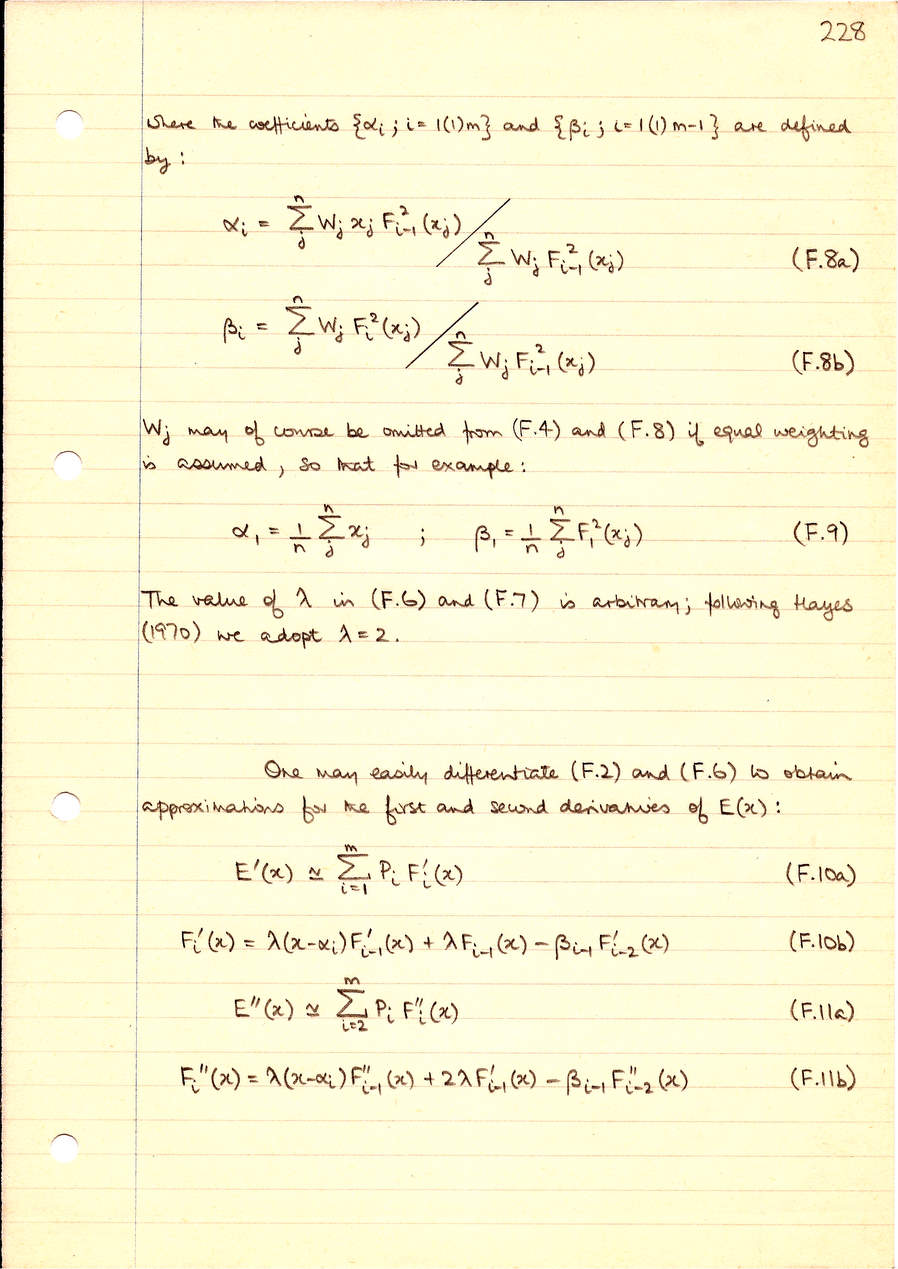 228
where the coefficients {αᵢ ; i = 1(1)m} and {βᵢ ; i = 1(1) m-1} are defined
by :
αᵢ = Σⱼⁿ Wⱼ xⱼ F²ᵢ₋₁ (xⱼ) / Σⱼⁿ Wⱼ F²ᵢ₋₁ (xⱼ) (F.8a)
βᵢ = Σⱼⁿ Wⱼ Fᵢ² (xⱼ) / Σⱼⁿ Wⱼ F²ᵢ₋₁ (xⱼ) (F.8b)
Wⱼ may of course be omitted from (F.4) and (F.8) if equal weighting
is assumed, so that for example :
α₁ = 1/n Σⱼⁿ xⱼ ; β₁ = 1/n Σⱼⁿ F₁² (xⱼ) (F.9)
The value of λ in (F.6) and (F.7) is arbitrary; following Hayes
(1970) we adopt λ = 2.
One may easily differentiate (F.2) and (F.6) to obtain
approximations for the first and second derivatives of E(x) :
E′(x) ≃ Σᵢ₌₁ᵐ Pᵢ Fᵢ′(x) (F.10a)
Fᵢ′(x) = λ(x-αᵢ) F′ᵢ₋₁(x) + λ Fᵢ₋₁(x) - βᵢ₋₁ F′ᵢ₋₂(x) (F.10b)
E″(x) ≃ Σᵢ₌₂ᵐ Pᵢ Fᵢ″(x) (F.11a)
Fᵢ″(x) = λ(x-αᵢ) F″ᵢ₋₁(x) + 2λ F′ᵢ₋₁(x) - βᵢ₋₁ F″ᵢ₋₂(x) (F.11b)